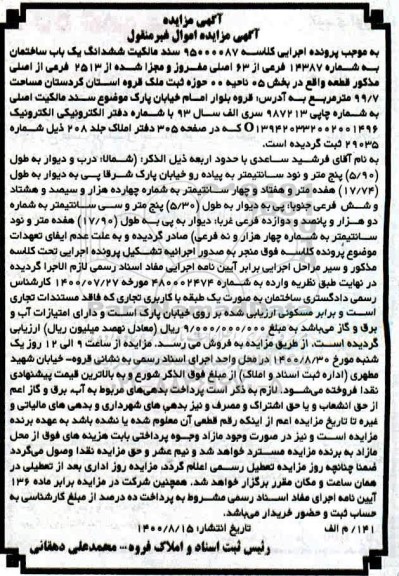 آگهی مزایده
آگهی مزایده اموال غیرمنقول
به موجب پرونده اجرایی کلاسه ۹۵۰۰۰۰۸۷ سند مالکیت ششدانگ یک باب ساختمان
به شماره ۱۴۳۸۷ فرعی از ۶۳ اصلی مفروز و مجزا شده از ۲۵۱۳ فرعی از اصلی
مذکور قطعه واقع در بخش ۰۵ ناحیه ۰۰ حوزه ثبت ملک قروه استان کردستان مساحت
۹۹/۷ مترمربع به آدرس: قروه بلوار امام خیابان پارک موضوع سند مالکیت اصلی
به شماره چاپی ۹۸۷۲۱۳ سری الف سال ۹۳ با شماره دفتر الکترونیکی الکترونیک
۱۳۹۴۲۰۳۳۲۰۰۲۰۰۱۴۹۶O که در صفحه ۳۰۵ دفتر املاک جلد ۲۰۸ ذیل شماره
۲۹۰۳۵ ثبت گردیده است.
به نام آقای فرشید ساعدی با حدود اربعه ذیل الذکر: (شمالا: درب و دیوار به طول
(۵/۹۰) پنج متر و نود سانتیمتر به پیاده رو خیابان پارک شرقا پی به دیوار به طول
(۱۷/۷۴) هفده متر و هفتاد و چهار سانتیمتر به شماره چهارده هزار و سیصد و هشتاد
و شش فرعی جنوبا: پی به دیوار به طول (۵/۳۰) پنج متر و سی سانتیمتر به شماره
دو هزار و پانصد و دوازده فرعی غربا: دیوار به پی به طول (۱۷/۹۰) هفده متر و نود
سانتیمتر به شماره چهار هزار و نه فرعی) صادر گردیده و به علت عدم ایفای تعهدات
موضوع پرونده کلاسه فوق منجر به صدور اجرائیه تشکیل پرونده اجرایی تحت کلاسه
مذکور و سیر مراحل اجرایی برابر آیین نامه اجرایی مفاد اسناد رسمی لازم الاجرا گردیده
در نهایت طبق نظریه وارده به شماره ۴۸۰۰۰۲۴۷۴ مورخه ۱۴۰۰/۰۷/۲۷ کارشناس
رسمی دادگستری ساختمان به صورت یک طبقه با کاربری تجاری که فاقد مستندات تجاری
است و برابر مسکونی ارزیابی شده بر روی خیابان پارک است و دارای امتیازات آب و
برق و گاز می‌باشد به مبلغ ۹/۰۰۰/۰۰۰/۰۰۰ ریال (معادل نهصد میلیون ریال) ارزیابی
گردیده است. از طریق مزایده به فروش می رسد. مزایده از ساعت ۹ الی ۱۲ روز یک
شنبه مورخ ۱۴۰۰/۸/۳۰ در محل واحد اجرای اسناد رسمی به نشانی قروه- خیابان شهید
مطهری (اداره ثبت اسناد و املاک) از مبلغ فوق الذکر شروع و به بالاترین قیمت پیشنهادی
نقدا فروخته می‌شود. لازم به ذکر است پرداخت بدهی‌های مربوط به آب، برق و گاز اعم
از حق انشعاب و یا حق اشتراک و مصرف و نیز بدهی های شهرداری و بدهی های مالیاتی و
غیره تا تاریخ مزایده اعم از اینکه رقم قطعی آن معلوم شده یا نشده باشد به عهده برنده
مزایده است و نیز در صورت وجود مازاد وجوه پرداختی بابت هزینه های فوق از محل
مازاد به برنده مزایده مسترد خواهد شد و نیم عشر و حق مزایده نقدا وصول می‌گردد
ضمنا چنانچه روز مزایده تعطیل رسمی اعلام گردد، مزایده روز اداری بعد از تعطیلی در
همان ساعت و مکان مقرر برگزار خواهد شد. همچنین شرکت در مزایده برابر ماده ۱۳۶
آیین نامه اجرای مفاد اسناد رسمی مشروط به پرداخت ده درصد از مبلغ کارشناسی به
حساب ثبت و حضور خریدار می‌باشد.
۱۴۱/ م الف تاریخ انتشار: ۱۴۰۰/۸/۱۵
رئیس ثبت اسناد و املاک قروه... محمدعلی دهقانی